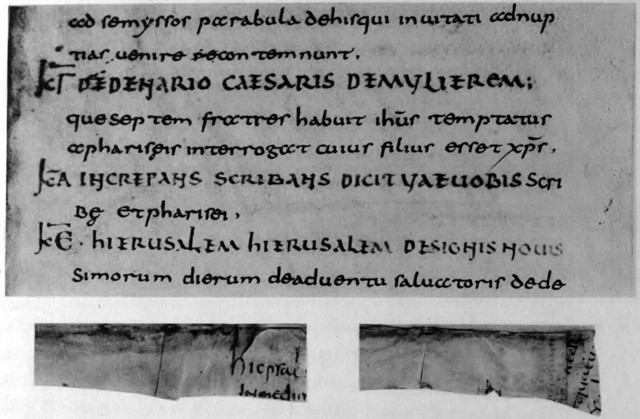 ad semyssos parabula dehisqui inuitati adnup
tias uenire recontemnunt.
DEDENARIO CAESARIS DEMULIEREM;
que septem fratres habuit ihūs temptatus
apharisęis interrogat cuius filius esset xp̄s,
INCREPANS SCRIBANS DICIT VAEUOBIS Scri
Bę Etpharisei,
HIERUSALEM HIERUSALEM DESIGNIS NOUIS
Simorum dierum deaduentu saluatoris dede